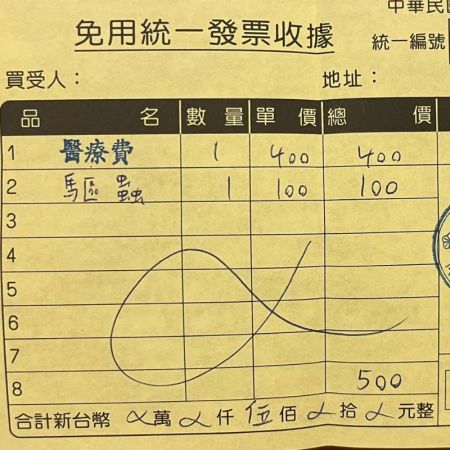 中華民
免用統一發票收據
統一編號
買受人： 地址：
品 名 數 量 單 價 總 價
1 醫療費 1 400 400
2 驅蟲 1 100 100
3
4
5
6
7
8 500
合計新台幣 萬 仟 伍 佰 拾 元整